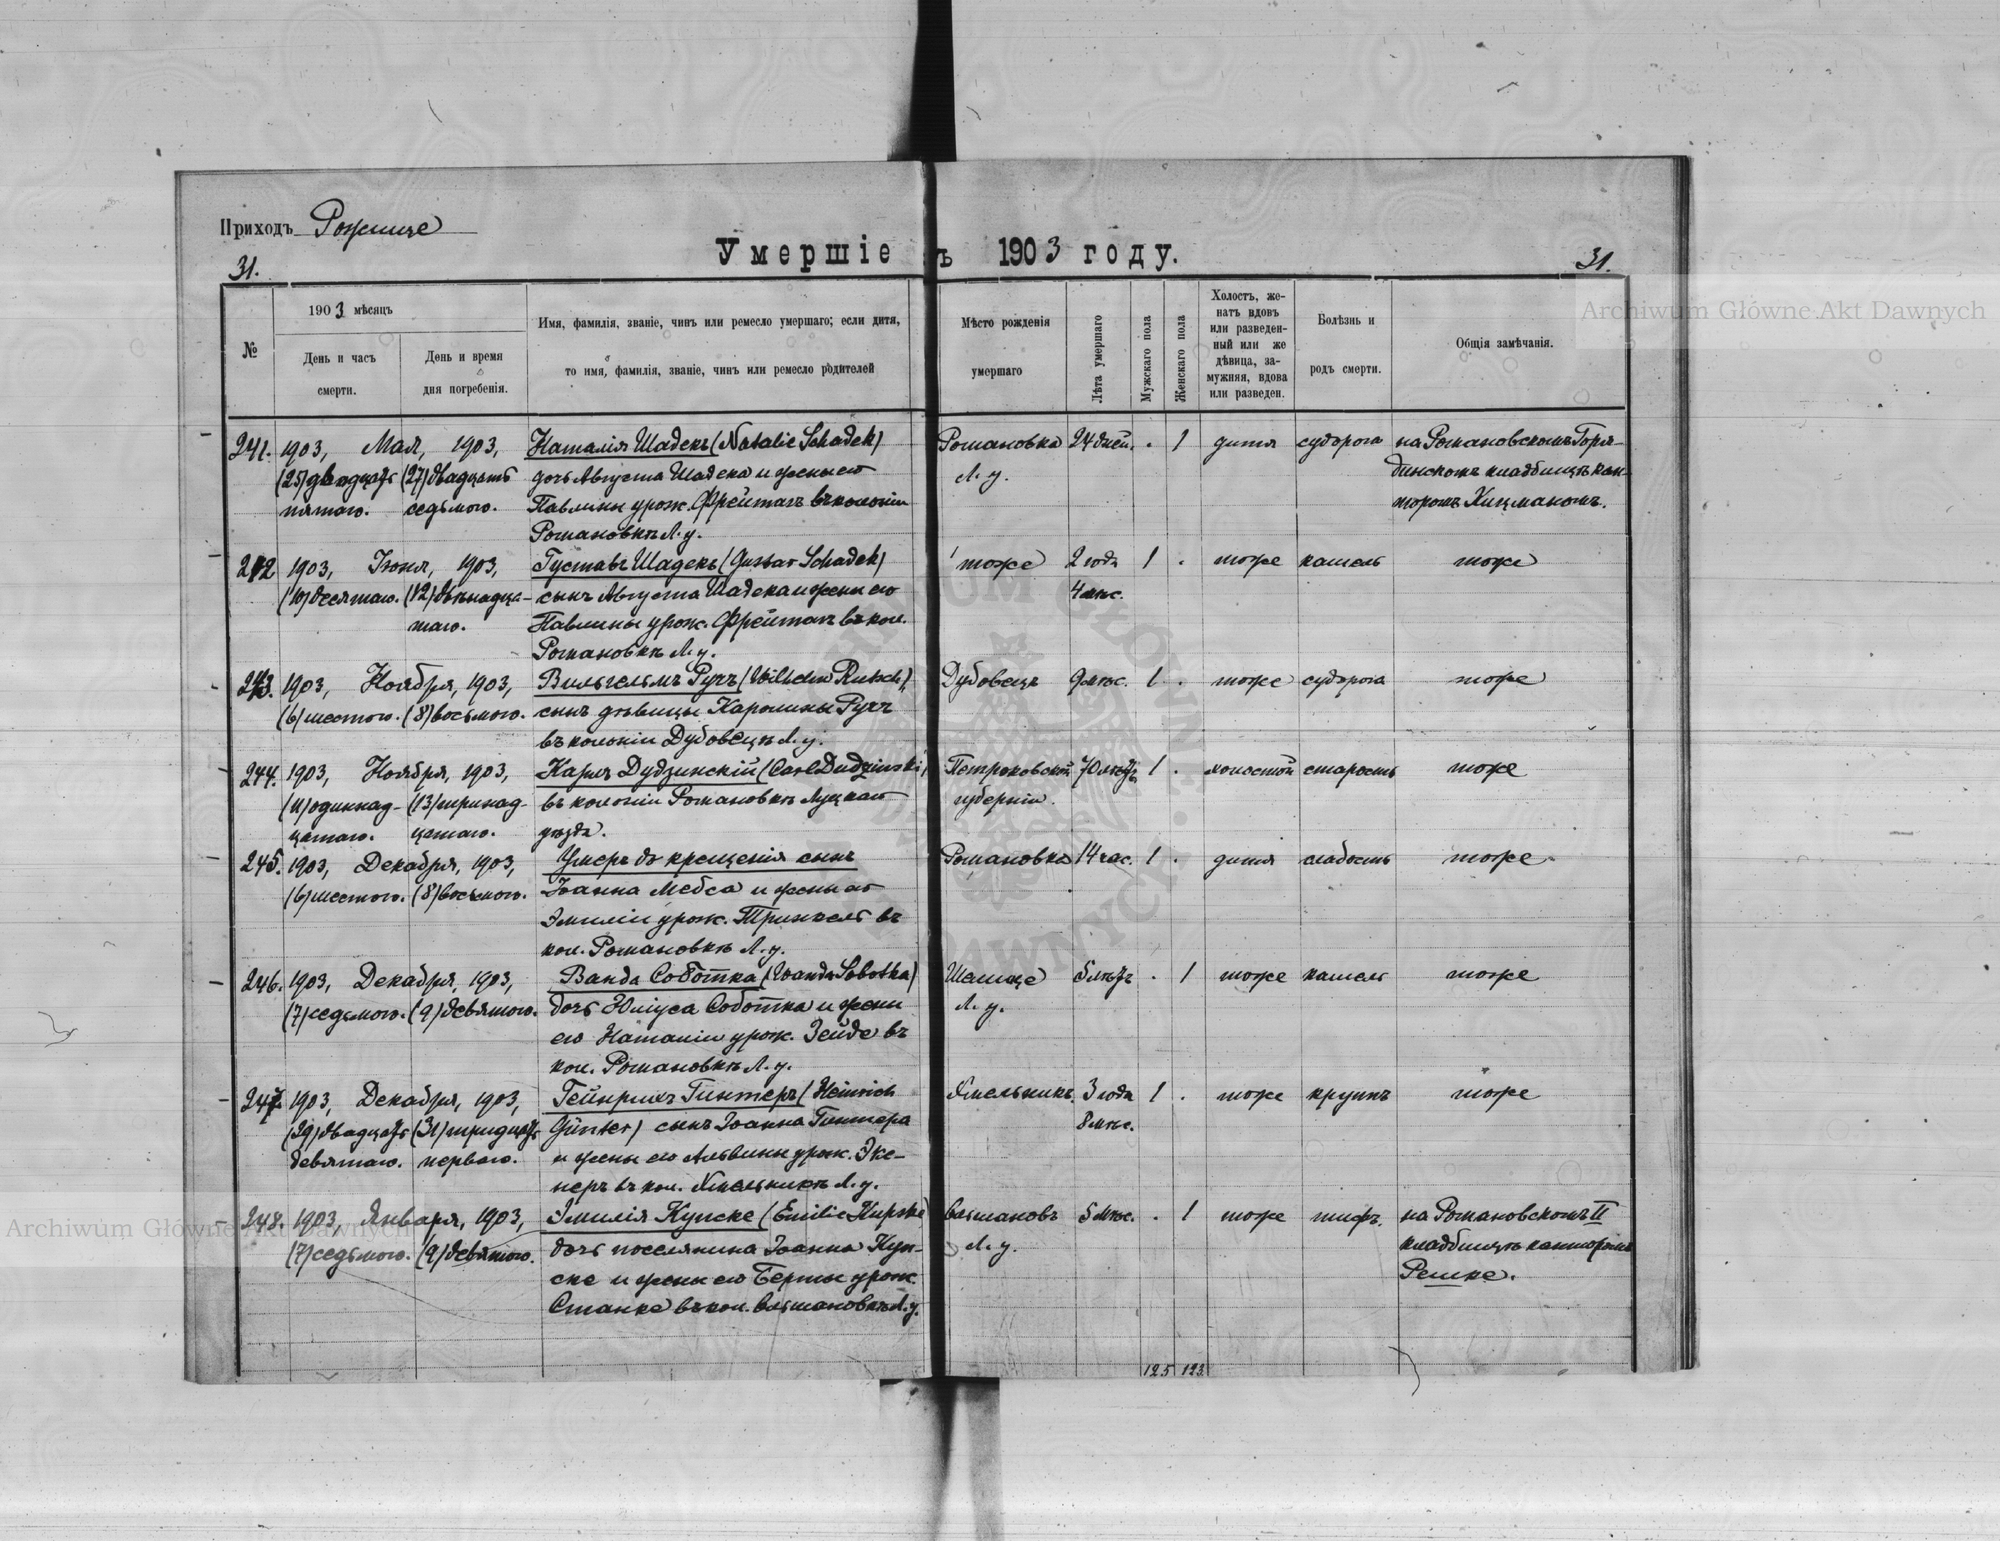 Приходъ Рожище
Умершіе въ 1903 году.
31.
31.
№
1903 мѣсяцъ
День и часъ
смерти.
День и время
дня погребенія.
Имя, фамилія, званіе, чинъ или ремесло умершаго; если дитя,
то имя, фамилія, званіе, чинъ или ремесло родителей
Мѣсто рожденія
умершаго
Лѣта умершаго
Мужскаго пола
Женскаго пола
Холостъ, же-
натъ вдовъ
или разведен-
ный или же
дѣвица, за-
мужняя, вдова
или разведен.
Болѣзнь и
родъ смерти.
Общія замѣчанія.
241. 1903, Мая, 1903, Наталія Шадекъ (Natalie Schadek) Романовка 24 дней. . 1 дитя судорога на Романовскомъ
(25) двадцать (27) двадцать дочь Августа Шадека и жены его Л. у. кладбищѣ кан-
пятаго. седьмого. Павлины урож. Фрейтагъ въ колоніи торомъ Кицманомъ.
Романовкѣ Л. у.
242 1903, Іюня, 1903, Густавъ Шадекъ (Gustav Schadek) тоже 2 года 1 . тоже кашель тоже
(10) десятаго. (12) двѣнадца- сынъ Августа Шадека и жены его 4 мѣс.
таго. Павлины урож. Фрейтагъ въ кол.
Романовкѣ Л. у.
243. 1903, Ноября, 1903, Вильгельмъ Ручъ (Wilhelm Rutsch), Дубовецъ 9 мѣс. 1 . тоже судорога тоже
(6) шестого. (8) восьмого. сынъ дѣвицы Каролины Ручъ
въ колоніи Дубовецъ Л. у.
244. 1903, Ноября, 1903, Карлъ Дудзинскій (Carl Dudzinski) Петроковской 70 лѣтъ 1 . холостой старость тоже
(11) одиннад- (13) тринад- въ колоніи Романовкѣ Луцкаго губерніи.
цатаго. цатаго. уѣзда.
245. 1903, Декабря, 1903, Умеръ до крещенія сынъ Романовка 14 час. 1 . дитя слабость тоже
(6) шестого. (8) восьмого. Іоанна Мебса и жены его
Эмиліи урож. Тринкель въ
кол. Романовкѣ Л. у.
246. 1903, Декабря, 1903, Ванда Соботка (Wanda Sobotka) 5 лѣтъ . 1 тоже кашель тоже
(7) седьмого. (9) девятого. дочь Юліуса Соботка и жены Л. у.
его Наталіи урож. Зейде въ
кол. Романовкѣ Л. у.
247. 1903, Декабря, 1903, Гейнрихъ Гинтеръ (Heinrich Хмельникъ. 3 года 1 . тоже крупъ тоже
(29) двадцать (31) тридцать Günter) сынъ Іоанна Гинтера 8 мѣс.
девятаго. перваго. и жены его Альвины урож. Экс-
неръ въ кол. Хмельникѣ Л. у.
248. 1903, Января, 1903, Эмилія Купске (Emilie Kupske) 5 мѣс. . 1 тоже тифъ. на Романовскомъ II
(7) седьмого. (9) девятого. дочь поселянина Іоанна Куп- Л. у. кладбищѣ канторомъ
ске и жены его Берты урож. Решке.
Станке въ кол. Л. у.
125 123
Archiwum Główne Akt Dawnych
Archiwum Główne Akt Dawnych